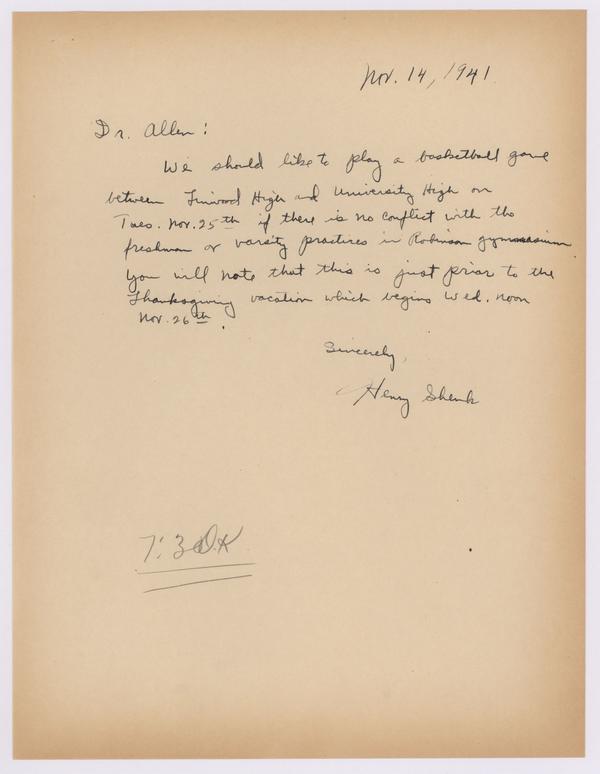 Nov. 14, 1941
Dr. Allen:
We should like to play a basketball game
between Linwood High and University High on
Tues. Nov. 25th if there is no conflict with the
freshman or varsity practices in Robinson gymnasium.
You will note that this is just prior to the
Thanksgiving vacation which begins Wed. noon
Nov. 26th.
Sincerely,
Henry Shenk
7:30 O.K